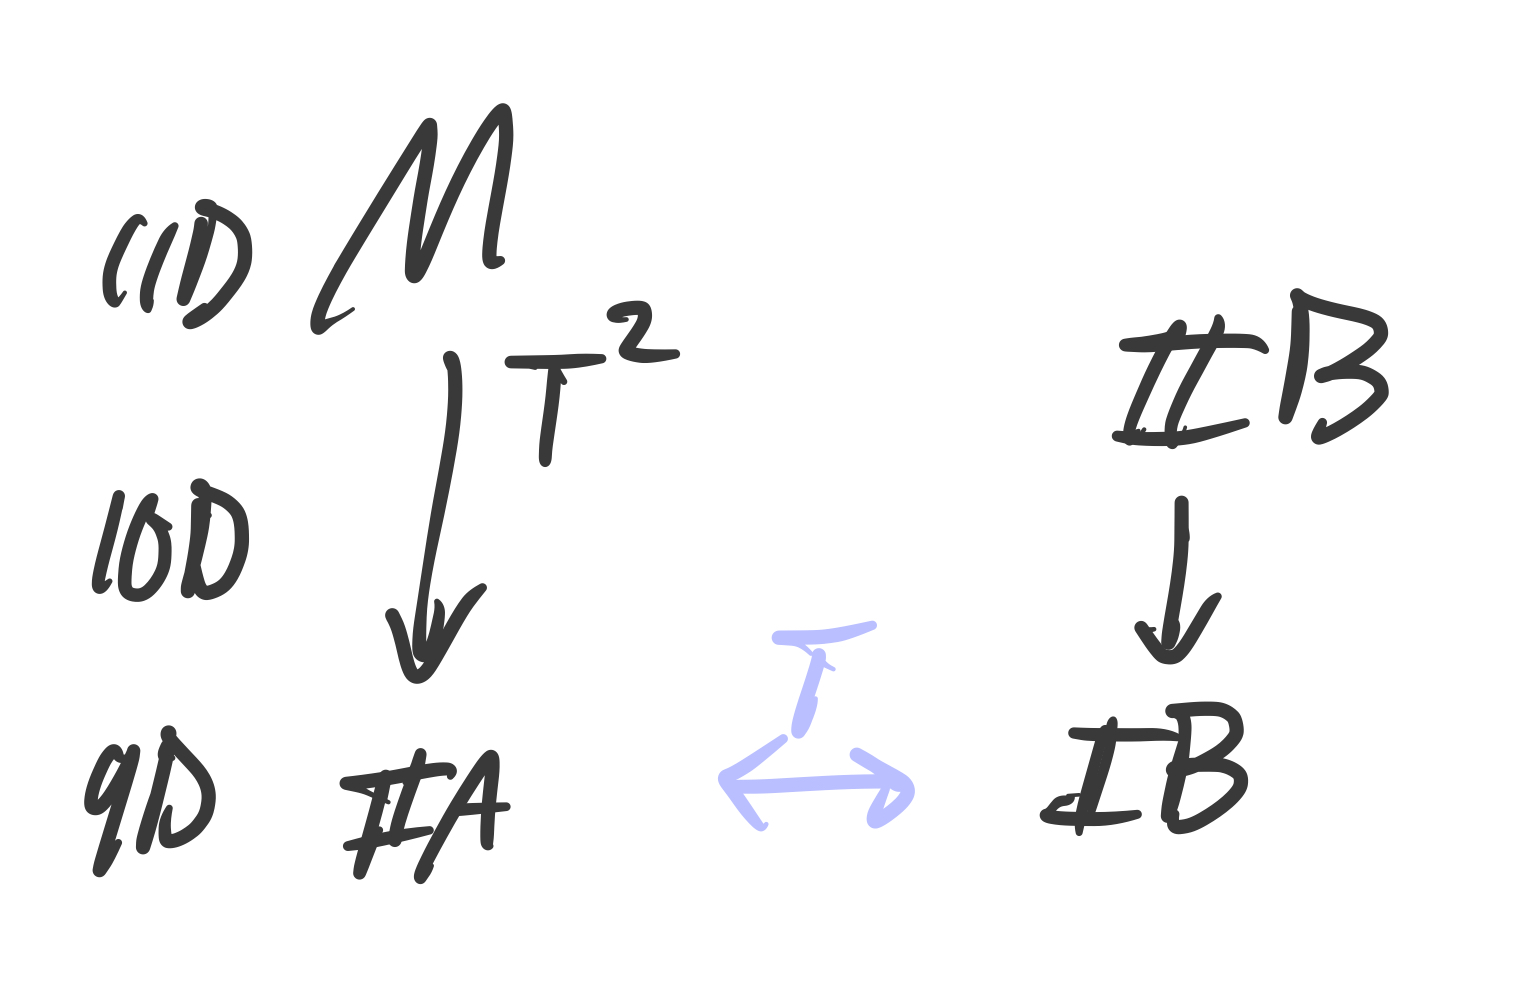 11D M
T²
IIB
10D
T
9D IIA IB